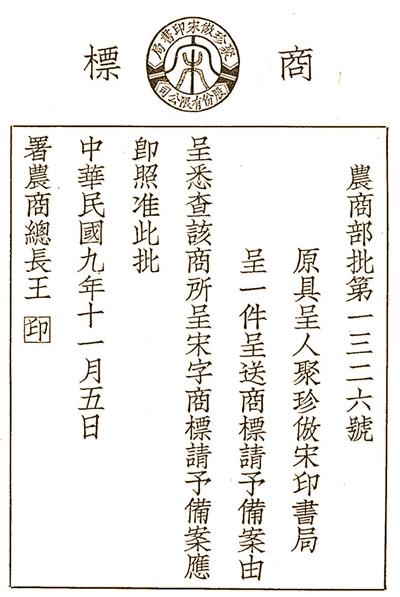 商標
聚珍倣宋印書局
股份有限公司
宋
農商部批第一三二六號
原具呈人聚珍倣宋印書局
呈一件呈送商標請予備案由
呈悉查該商所呈宋字商標請予備案應
卽照准此批
中華民國九年十一月五日
署農商總長王印